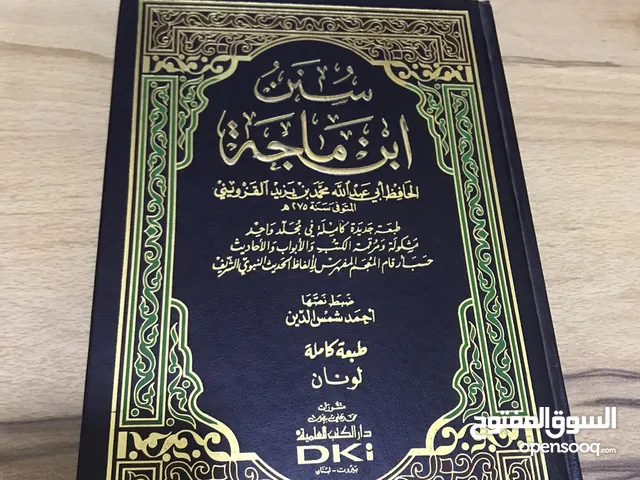 سنن
ابن ماجة
الحافظ أبي عبد الله محمد بن يزيد القزويني
المتوفى سنة ٢٧٥ هـ
طبعة جديدة كاملة في مجلد واحد
مشكولة ومرقمة الكتب والأبواب والأحاديث
حسب أرقام المعجم المفهرس لألفاظ الحديث النبوي الشريف
ضبط نصها
أحمد شمس الدين
طبعة كاملة
لونان
منشورات
محمد علي بيضون
دار الكتب العلمية
DKi
بيروت - لبنان
السوق المفتوح
opensooq.com